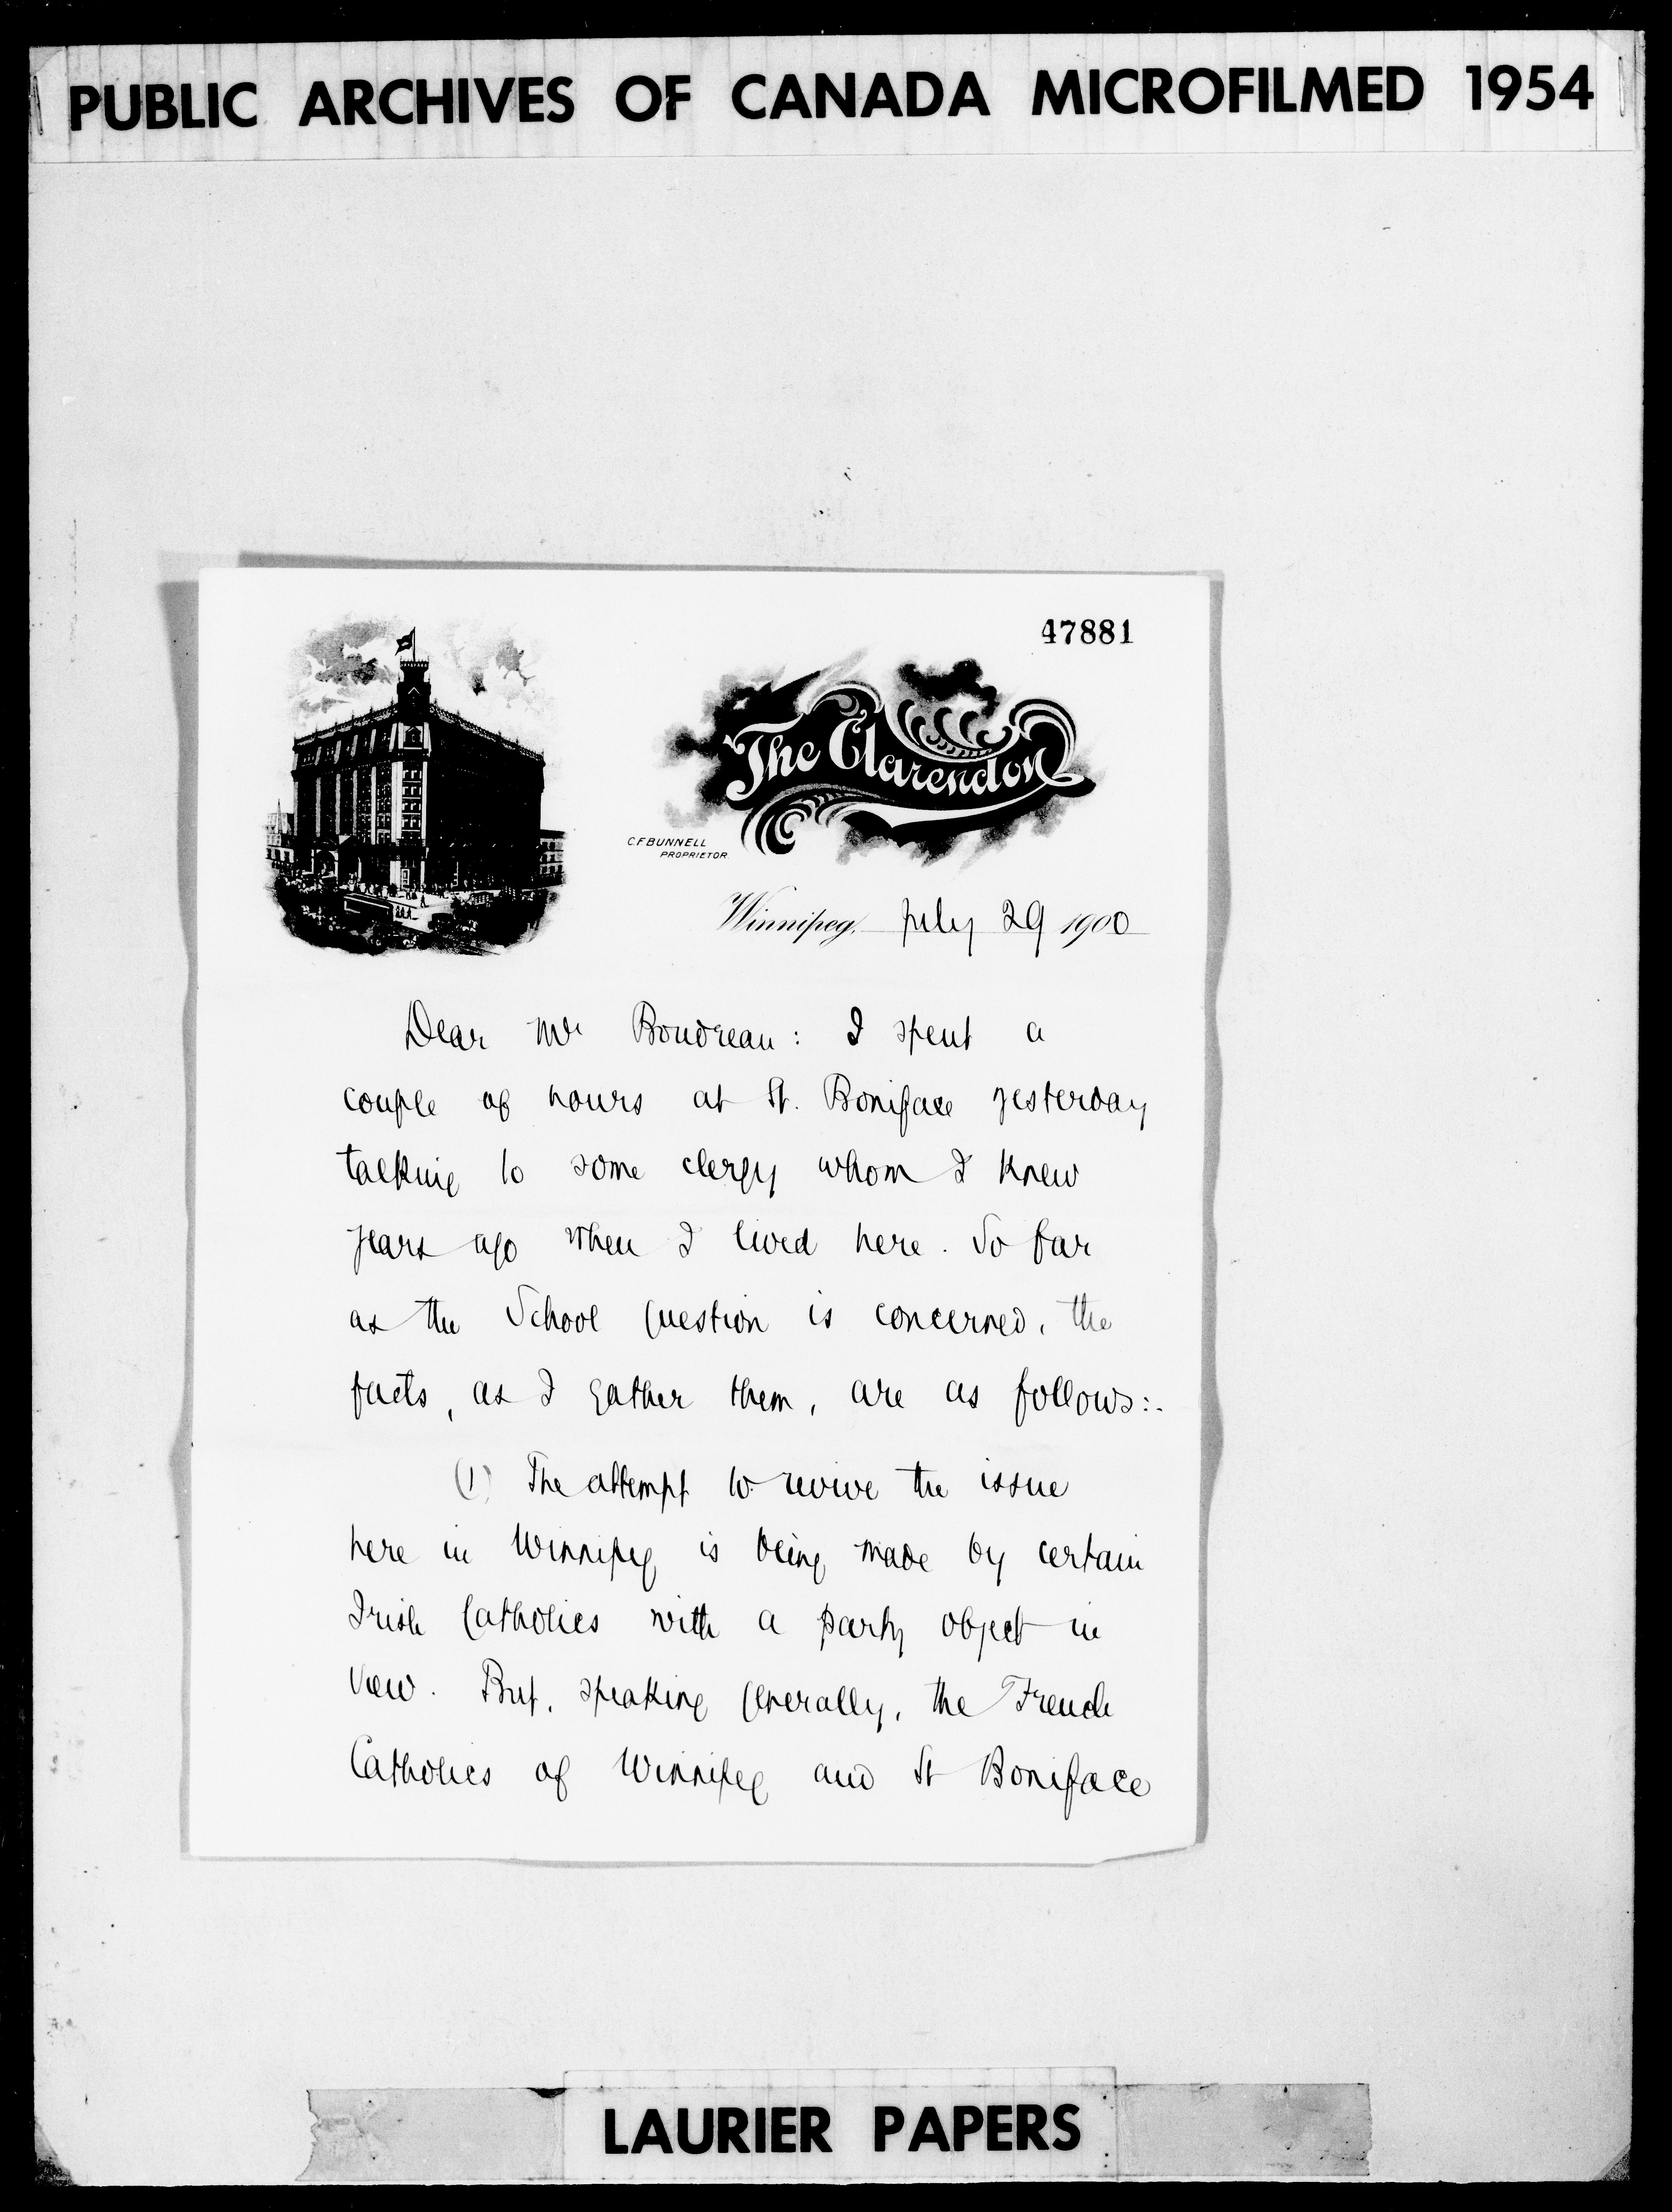 PUBLIC ARCHIVES OF CANADA MICROFILMED 1954
47881
The Clarendon
C.F. BUNNELL
PROPRIETOR.
Winnipeg, July 29 1900
Dear Mr Boudreau: I spent a
couple of hours at St. Boniface yesterday
talking to some clergy whom I knew
years ago when I lived here. So far
as the School Question is concerned, the
facts, as I gather them, are as follows:-
(1) The attempt to revive the issue
here in Winnipeg is being made by certain
Irish Catholics with a party object in
view. But, speaking generally, the French
Catholics of Winnipeg and St Boniface
LAURIER PAPERS